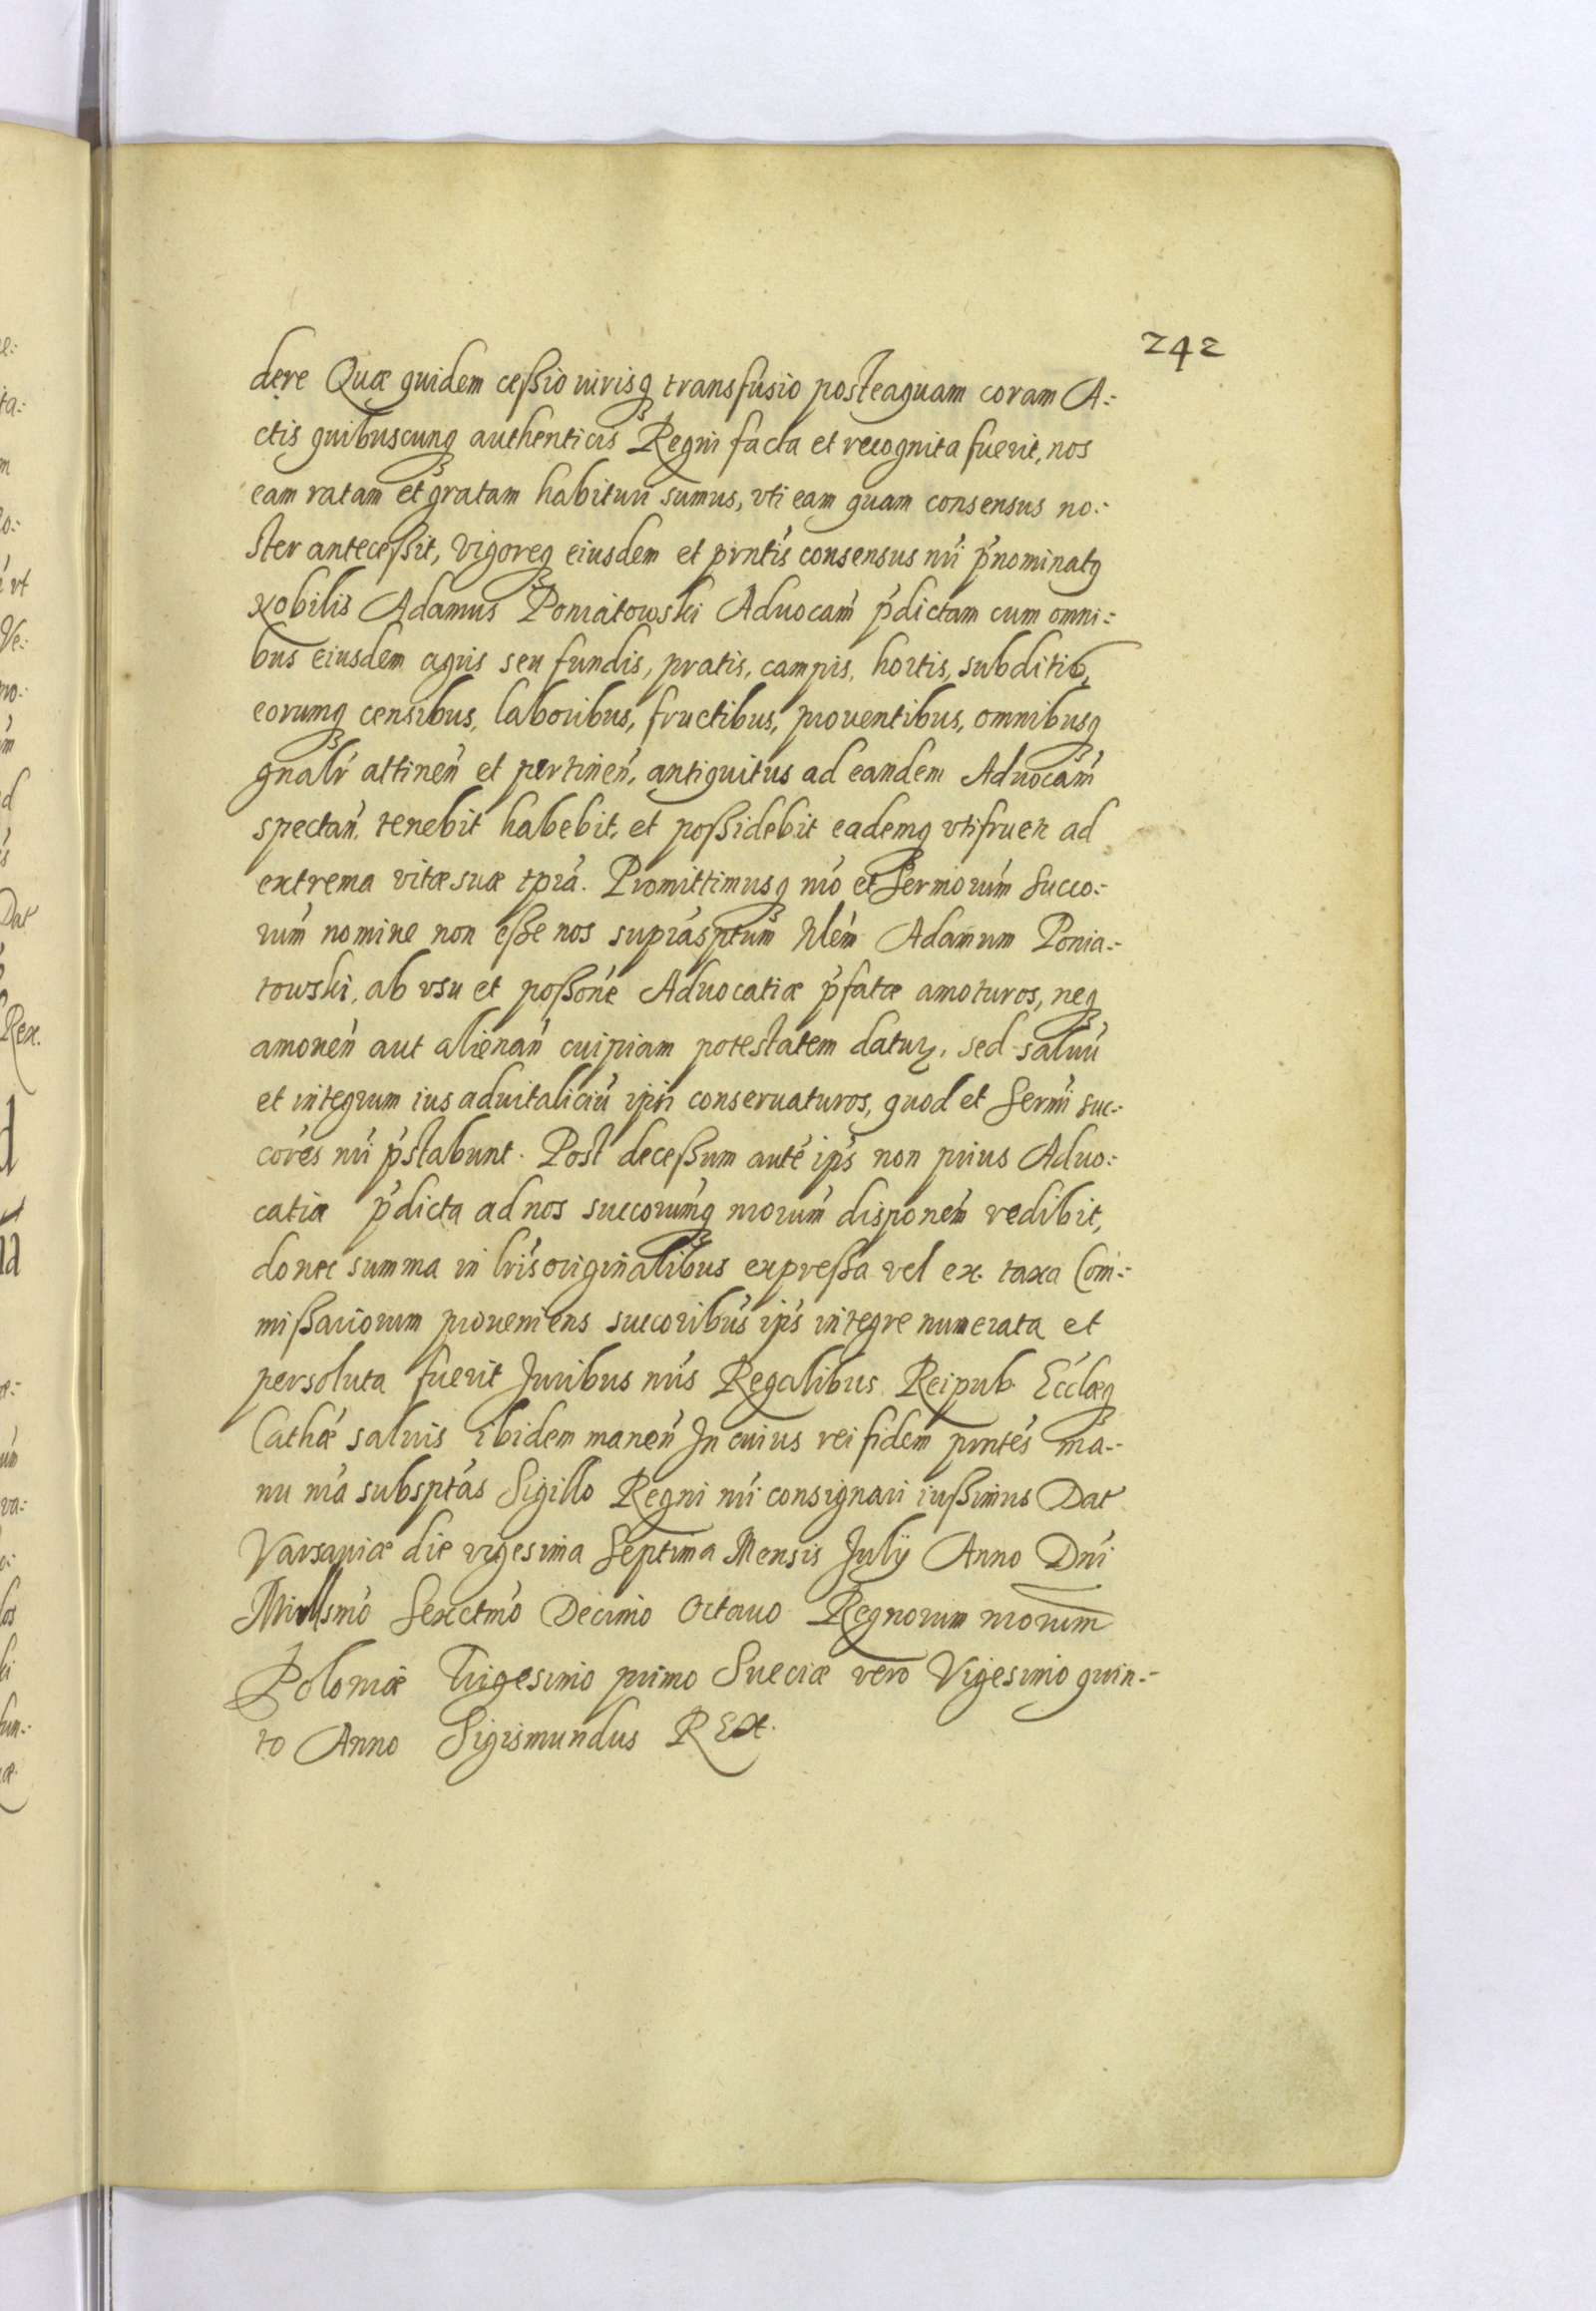 242
dere Quæ quidem ceßio iurisq transfusio posteaquam coram A-
ctis quibuscunq authenticis Regni facta et recognita fuerit, nos
eam ratam et gratam habituri sumus, vti eam quam consensus no-
ster anteceßit, vigoreq eiusdem et pñtis consensus ñri p̃nominatq
Nobilis Adamus Poniatowski Aduocam̃ p̃dictam cum omni-
bus eiusdem agris seu fundis, pratis, campis, hortis, subditis,
eorumq censibus, laboribus, fructibus, prouentibus, omnibusq
gñalr attineñ et pertineñ, antiquitus ad eandem Aduocam̃
spectañ, tenebit habebit, et poßidebit eademq vtifruetr ad
extrema vitæ suæ tp̃ra. Promittimusq ñro et Sermorum̃ Succo-
rum̃ nomine non eße nos suprasptum̃ Nlem̃ Adamum Ponia-
towski, ab vsu et poßoñe Aduocatiæ p̃fatæ amoturos, neq
amoueñ aut alienañ cuipiam potestatem daturos, sed saluũ
et integrum ius aduitaliciũ ip̃si conseruaturos, quod et Sermi suc-
cores ñri p̃stabunt. Post deceßum aute ip̃s non prius Aduo-
catia p̃dicta ad nos succorumq ñrorum disponem̃ redibit,
donec summa in lr̃is originalibus expreßa vel ex taxa Com-
mißariorum proueniens succoribus ip̃s integre numerata et
persoluta fuerit Juribus ñris Regalibus Reipub. Ecclæq
Cathæ saluis ibidem maneñ In cuius rei fidem pñtes ma-
nu ñra subsptas Sigillo Regni ñri consignari iußimus Dat
Varsauiæ die vigesima Septima Mensis Julij Anno Dñi
Millsmo Sexctmo Decimo Octauo Regnorum ñrorum
Poloniæ Trigesimo primo Sueciæ vero Vigesimo quin-
to Anno Sigismundus REX.